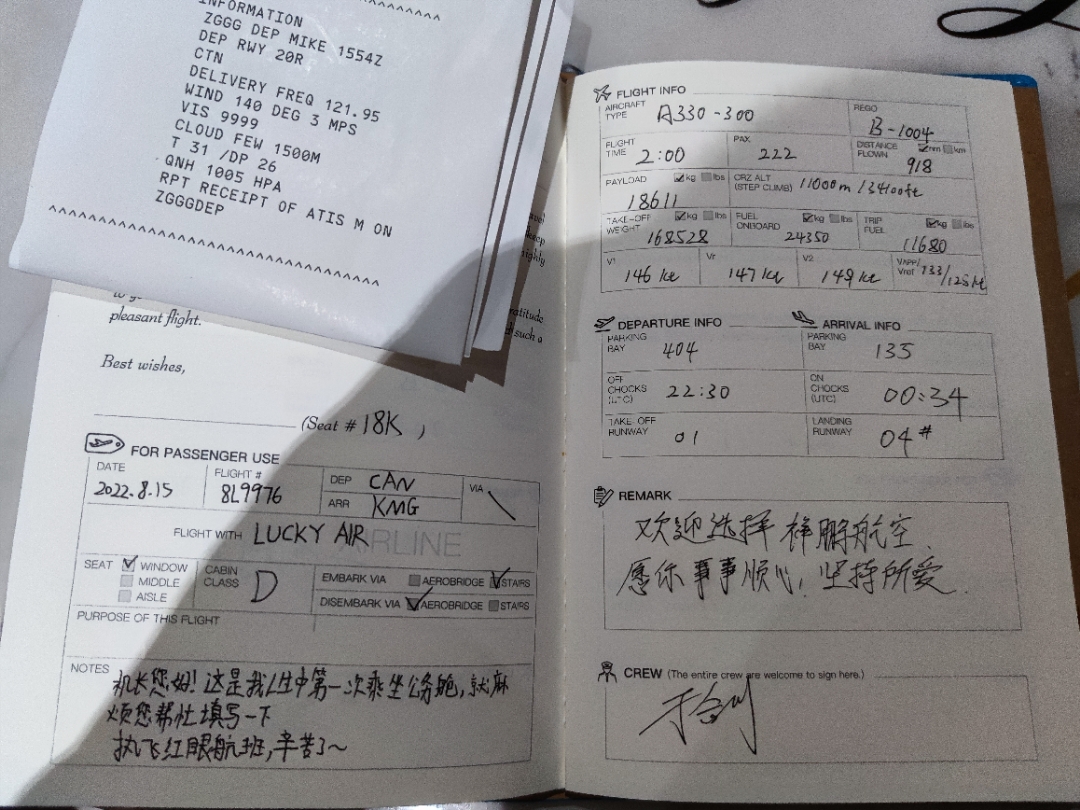 ^^^^^^^^^^^^^^
INFORMATION
ZGGG DEP MIKE 1554Z
DEP RWY 20R
CTN
DELIVERY FREQ 121.95
WIND 140 DEG 3 MPS
VIS 9999
CLOUD FEW 1500M
T 31 /DP 26
QNH 1005 HPA
RPT RECEIPT OF ATIS M ON
ZGGGDEP
^^^^^^^^^^^^^^^^^^^^^^^^^^^^^^
keep
ratitude
such a
pleasant flight.
Best wishes,
(Seat # 18K )
FOR PASSENGER USE
DATE 2022.8.15
FLIGHT # 8L9976
DEP CAN
ARR KMG
VIA \
FLIGHT WITH LUCKY AIR
AIRLINE
SEAT WINDOW
MIDDLE
AISLE
CABIN CLASS D
EMBARK VIA AEROBRIDGE STAIRS
DISEMBARK VIA AEROBRIDGE STAIRS
PURPOSE OF THIS FLIGHT
NOTES 机长您好!这是我人生中第一次乘坐公务舱,就麻
烦您帮忙填写一下
执飞红眼航班,辛苦了~
FLIGHT INFO
AIRCRAFT TYPE A330-300
REGO B-1004
FLIGHT TIME 2:00
PAX 222
DISTANCE FLOWN nm km 918
PAYLOAD kg lbs 18611
CRZ ALT (STEP CLIMB) 11000m / 34100ft
TAKE-OFF WEIGHT kg lbs 168528
FUEL ONBOARD kg lbs 24350
TRIP FUEL kg lbs 11680
V1 146 kt
Vr 147 kt
V2 149 kt
VAPP/Vref 133/128kt
DEPARTURE INFO
PARKING BAY 404
OFF CHOCKS (UTC) 22:30
TAKE-OFF RUNWAY 01
ARRIVAL INFO
PARKING BAY 135
ON CHOCKS (UTC) 00:34
LANDING RUNWAY 04#
REMARK
欢迎选择祥鹏航空.
愿你事事顺心,坚持所爱.
CREW (The entire crew are welcome to sign here.)